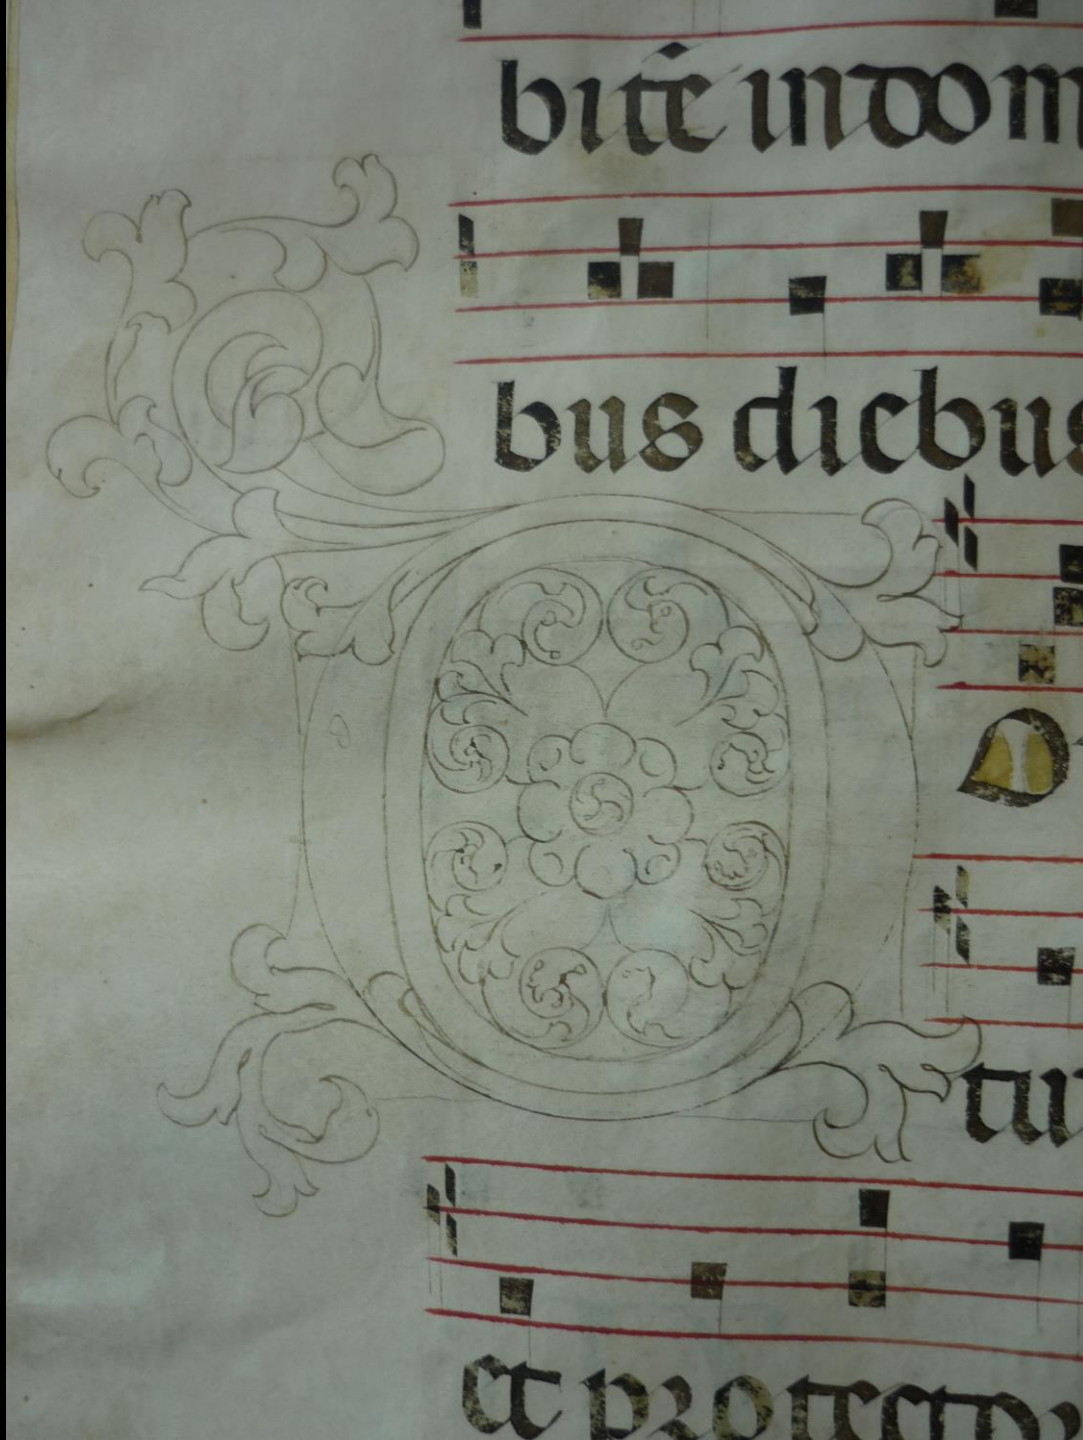 bitē in dom
bus diebus
tu
et protector